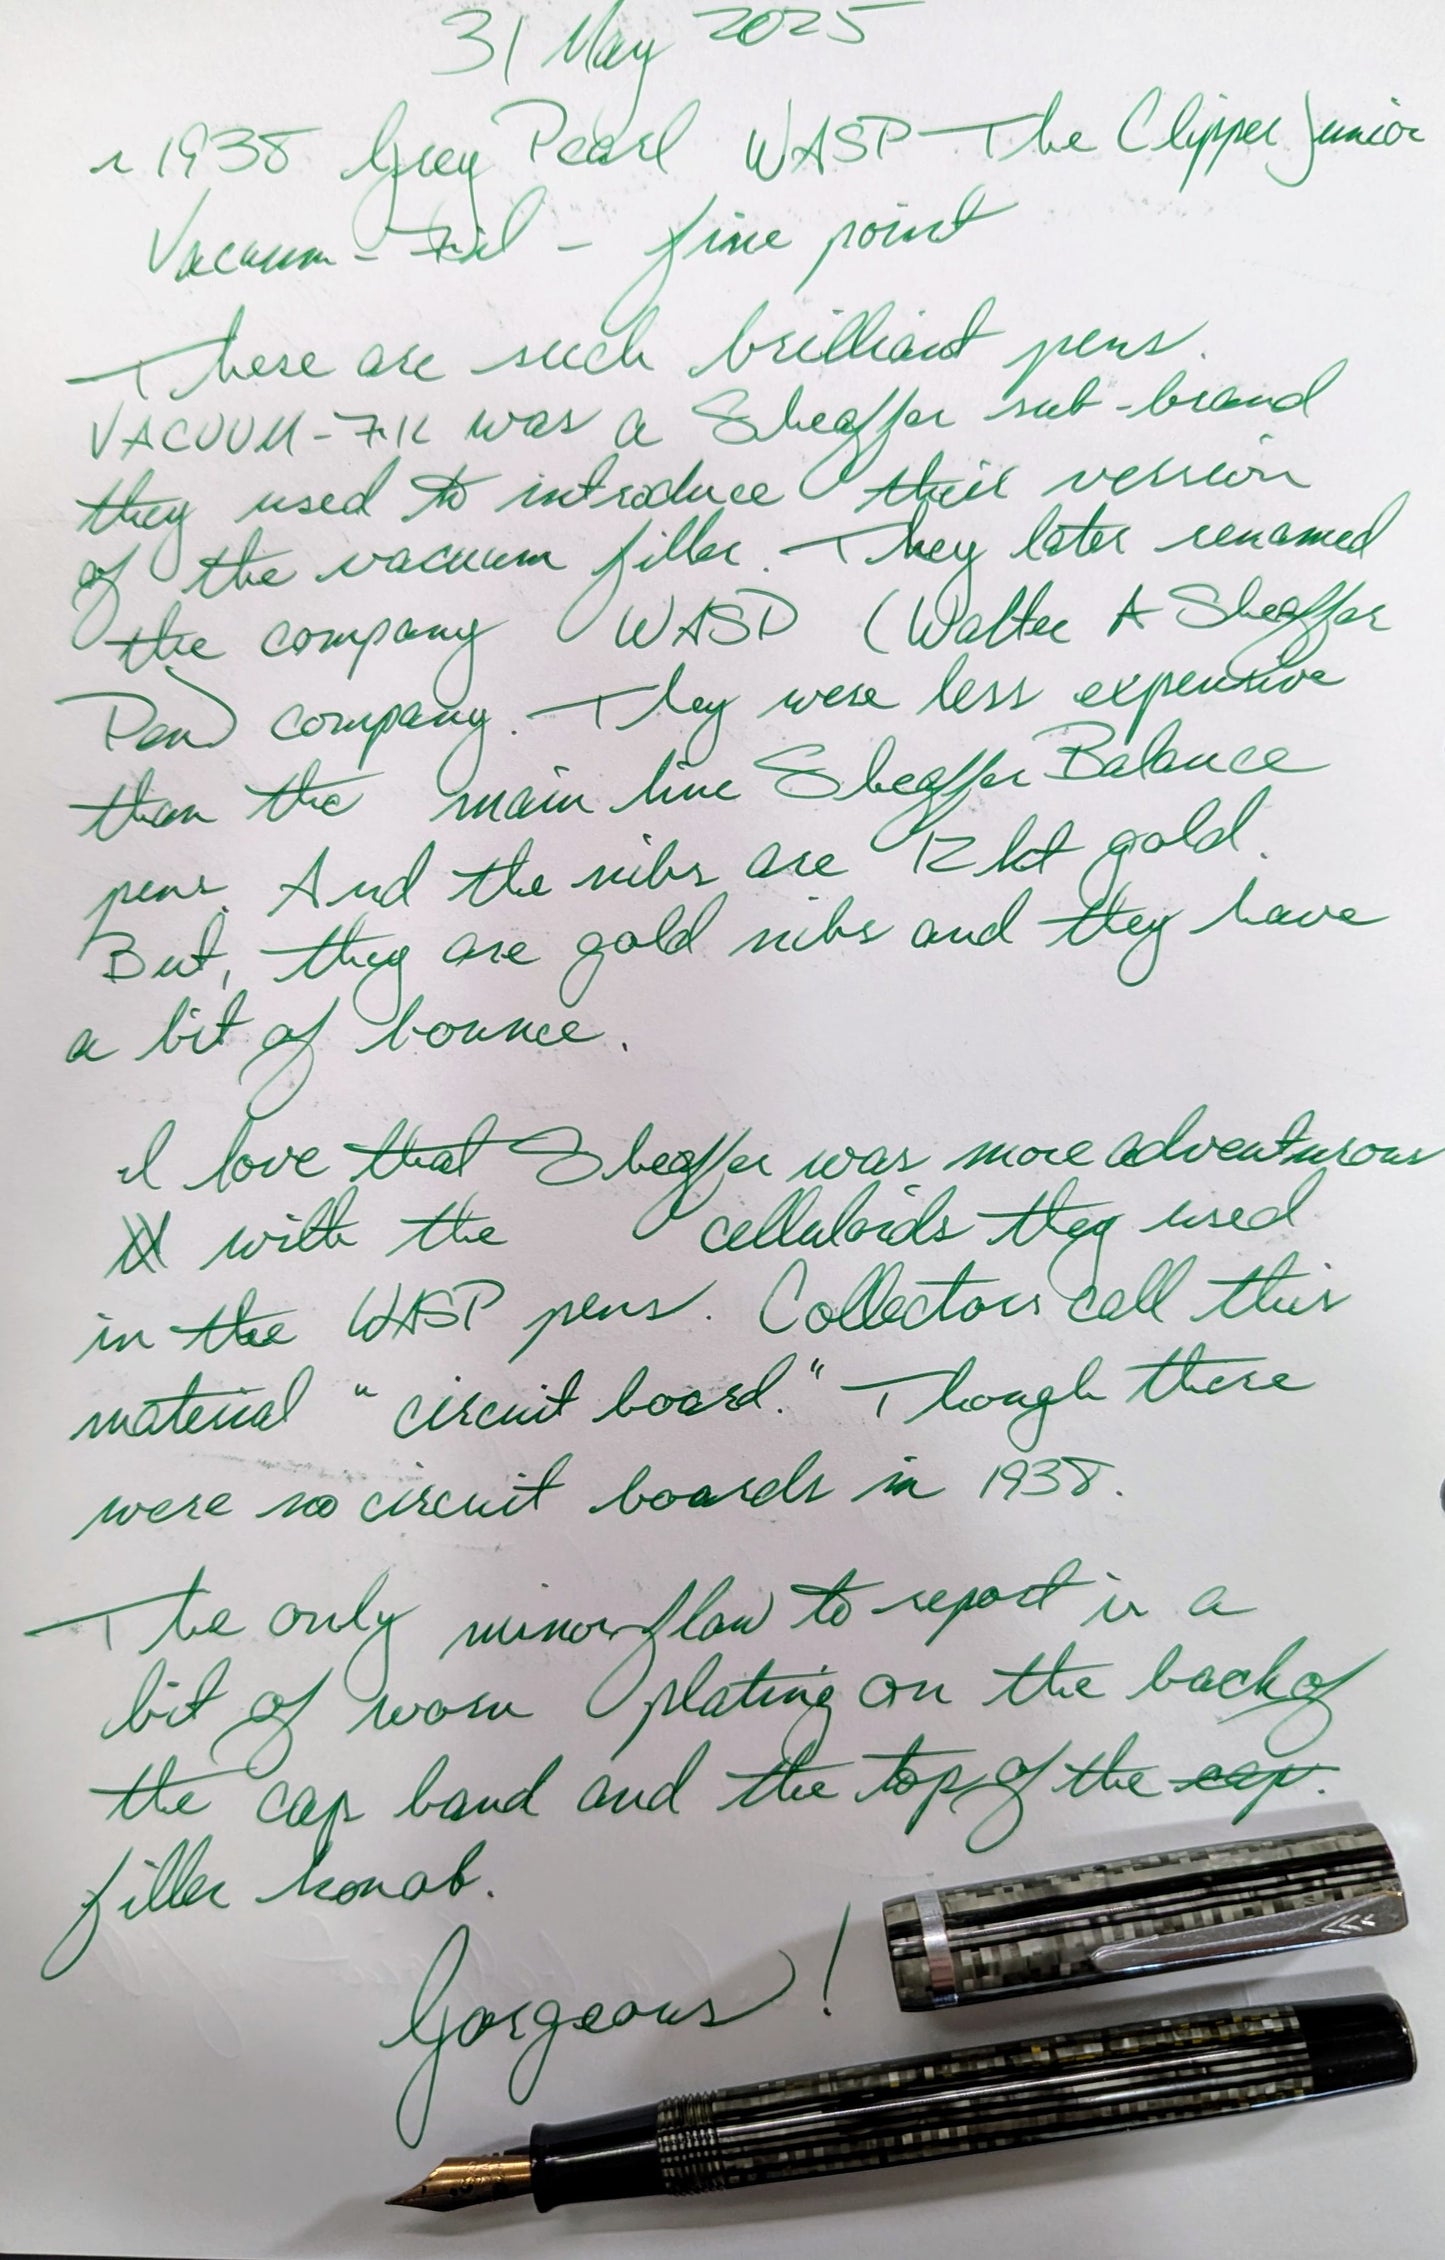 31 May 2025
~ 1938 Grey Pearl WASP The Clipper Junior
Vacuum-Fil - fine point
These are such brilliant pens.
VACUUM-FIL was a Sheaffer sub-brand
they used to introduce their version
of the vacuum filler. They later renamed
the company WASP (Walter A Sheaffer
Pen) company. They were less expensive
than the main line Sheaffer Balance
pens. And the nibs are 12 kt gold.
But, they are gold nibs and they have
a bit of bounce.
I love that Sheaffer was more adventurous
with the celluloids they used
in the WASP pens. Collectors call this
material "circuit board." Though there
were no circuit boards in 1938.
The only minor flaw to report is a
bit of worn plating on the back of
the cap band and the top of the cap.
filler konob.
Gorgeous!